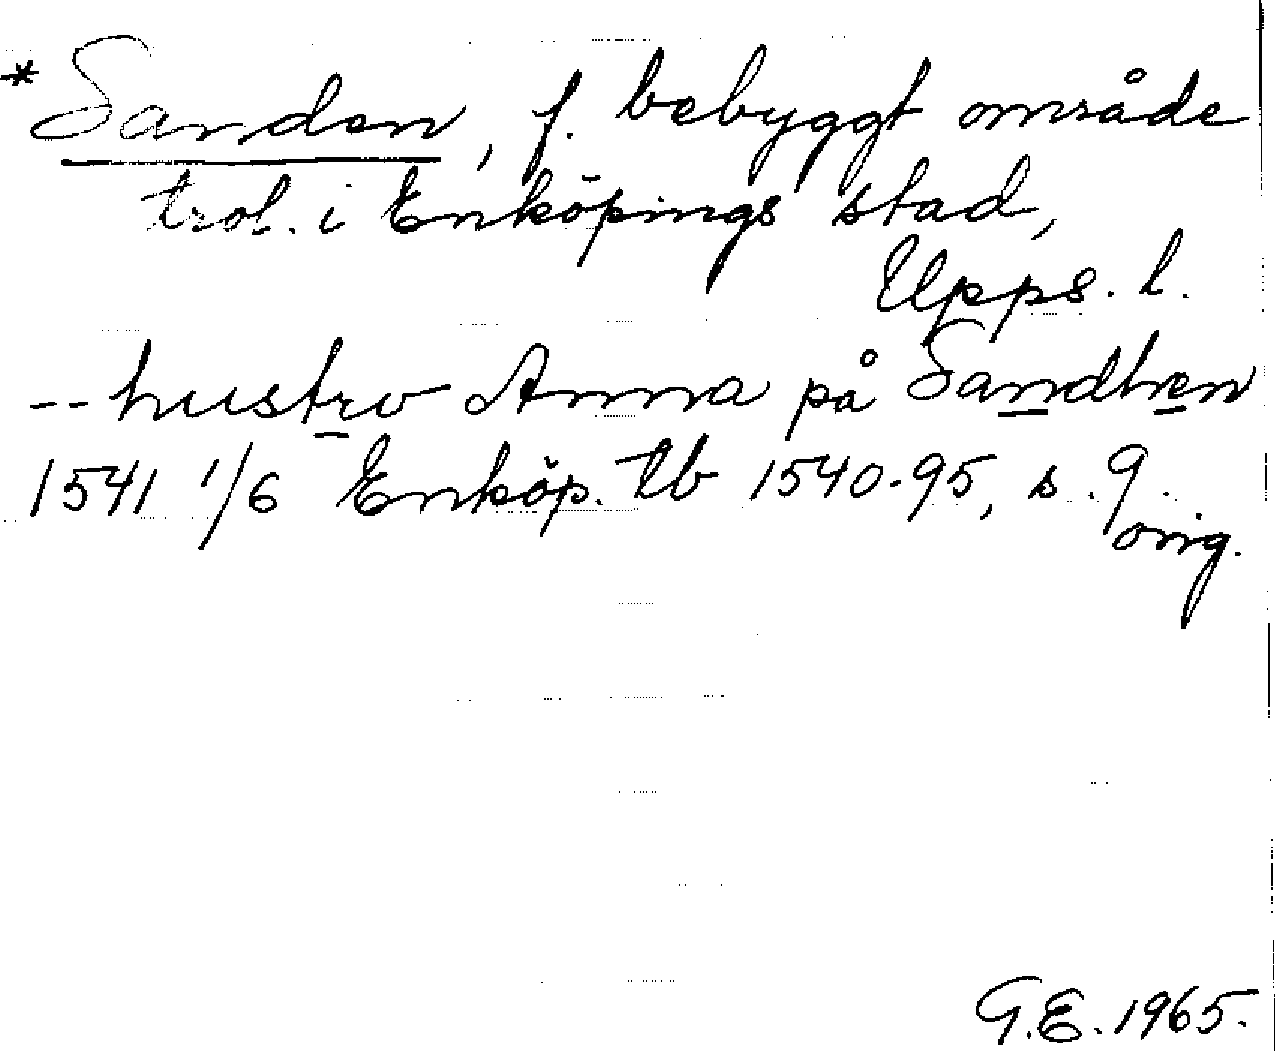 *Sanden, f. bebyggt område
trol. i Enköpings stad,
Upps. l.
-- hustrv Anna på Sandhen
1541 1/6 Enköp. tb 1540-95, s. 9.
orig.
G.E. 1965.